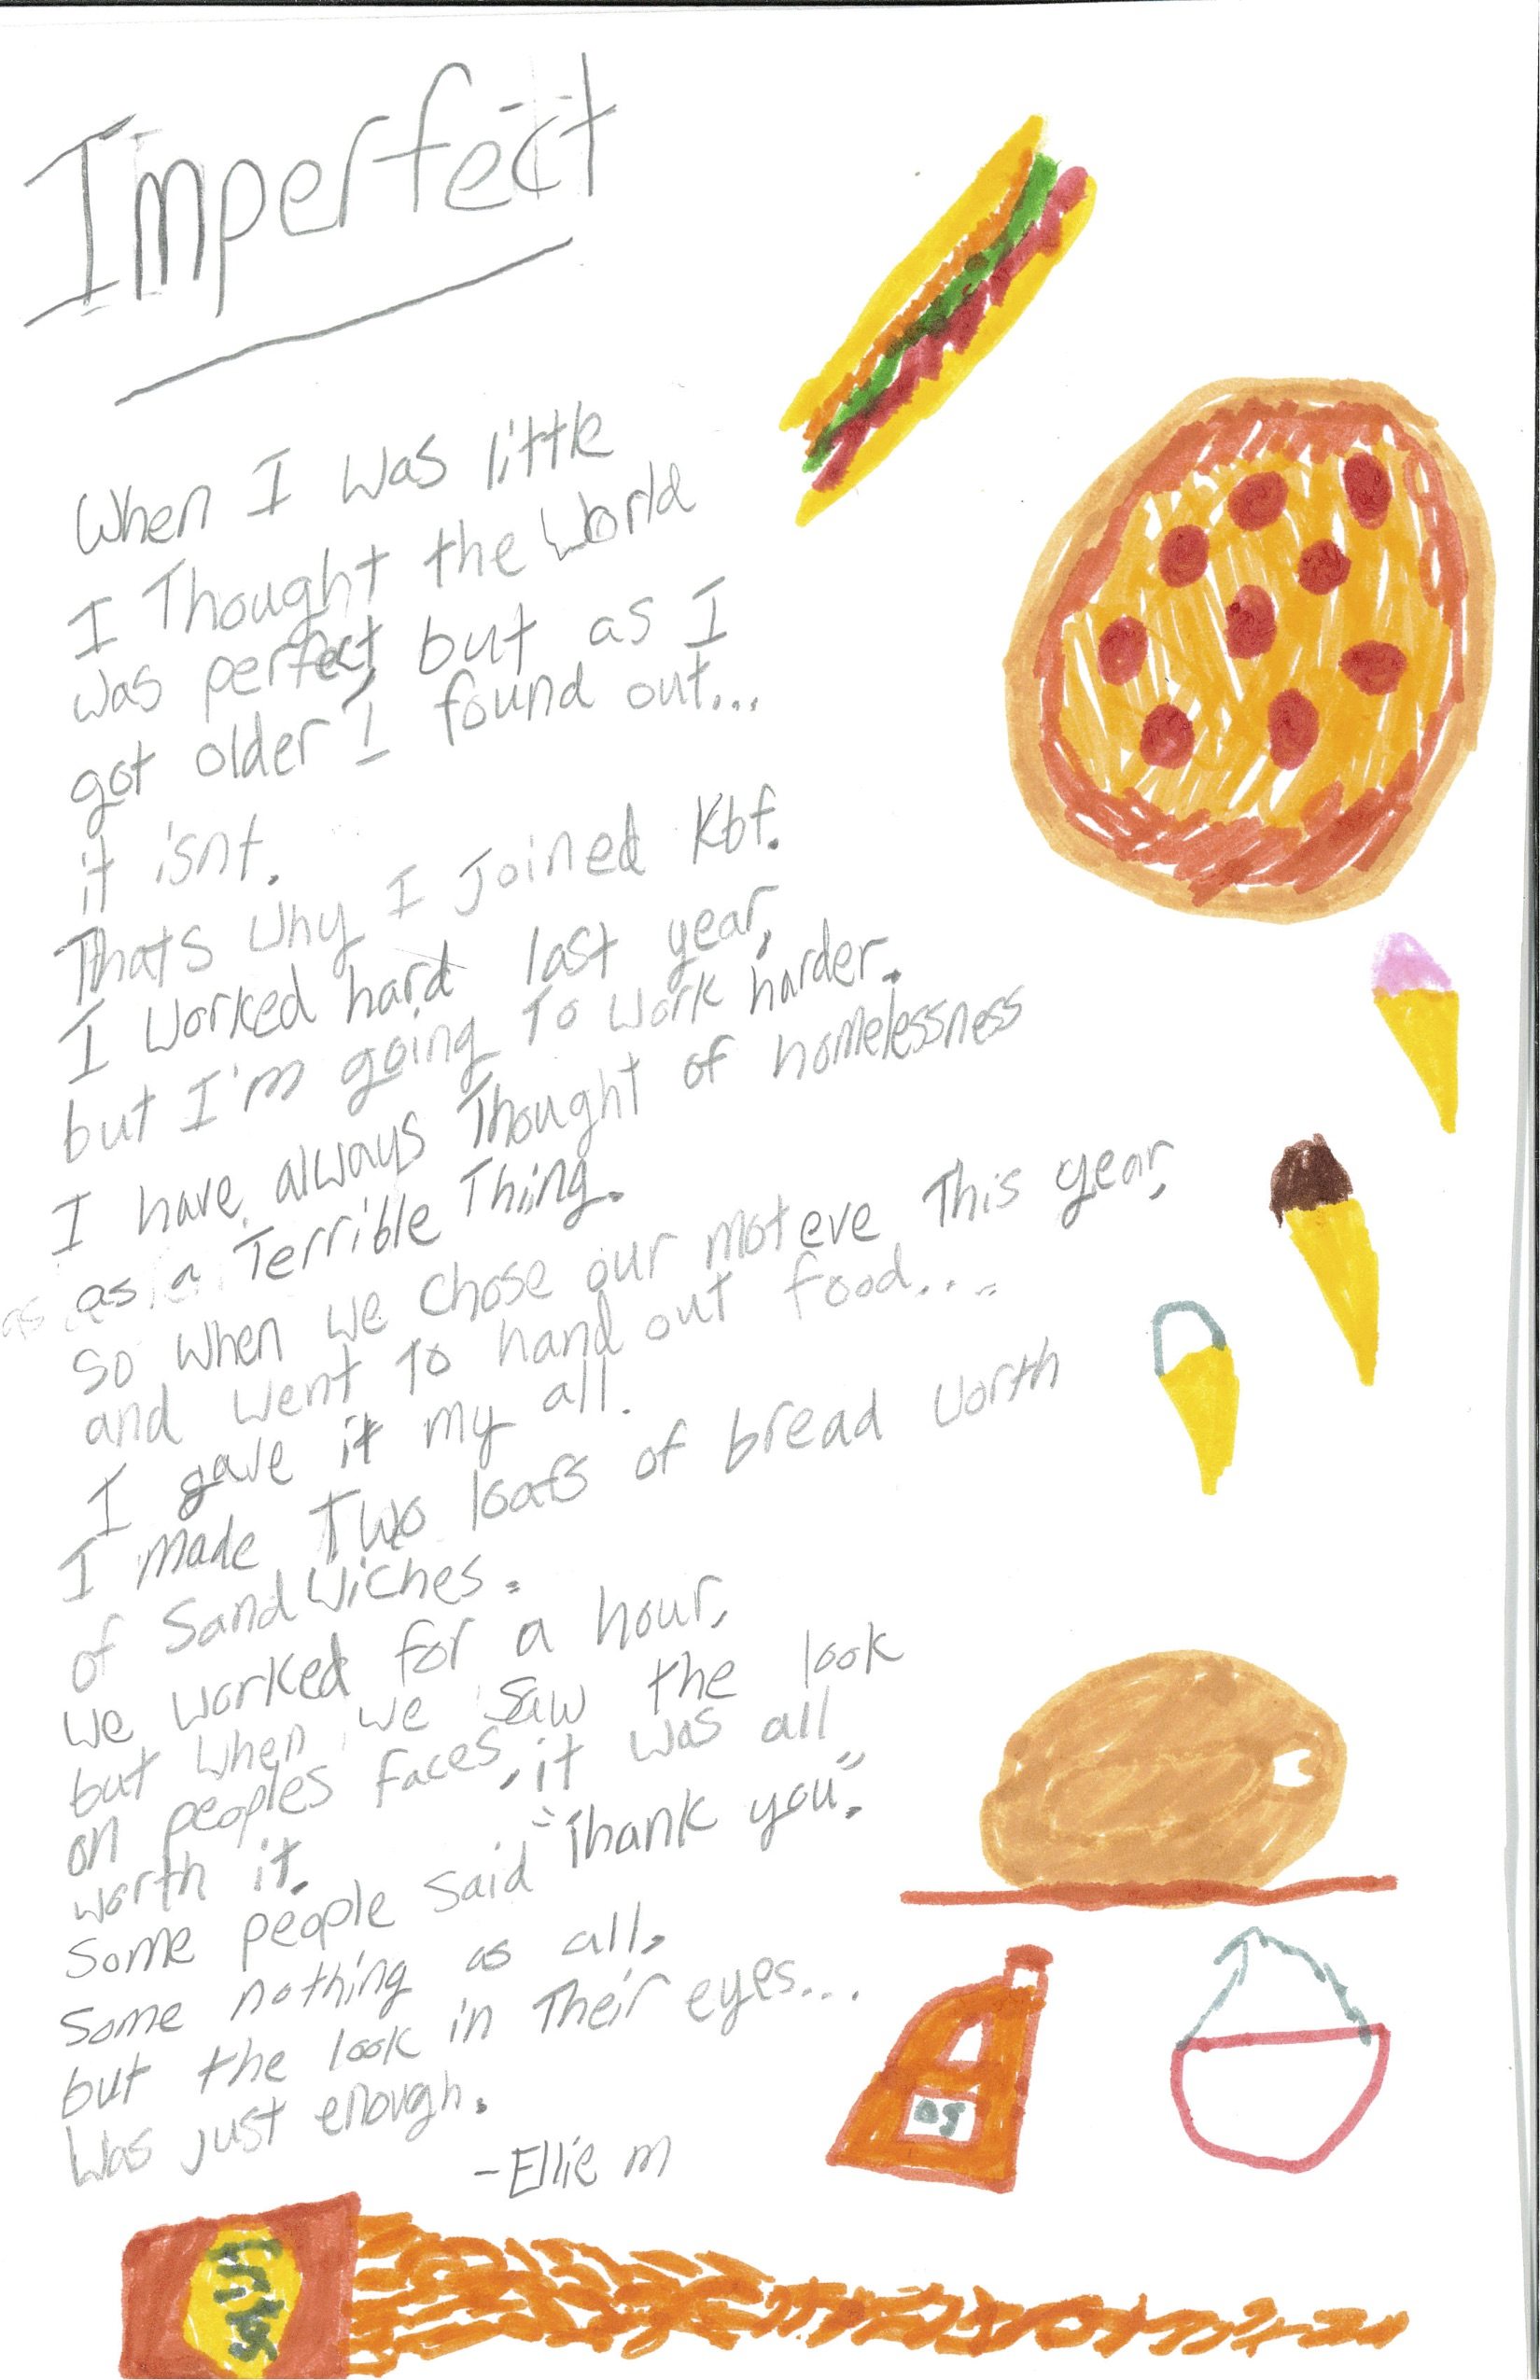 Imperfect
When I was little
I Thought the world
was perfect, but as I
got older I found out...
it isnt.
Thats why I Joined Kbf.
I worked hard last year,
but I'm going To work harder.
I have always Thought of homelessness
as as a Terrible Thing.
So when we chose our moteve This year,
and went To hand out food....
I gave it my all.
I made Two loafs of bread worth
of Sandwiches.
we worked for a hour,
but when we saw the look
on peoples faces, it was all
worth it.
Some people said "Thank you".
Some nothing as all,
but the look in Their eyes...
was just enough.
-Ellie m
OJ